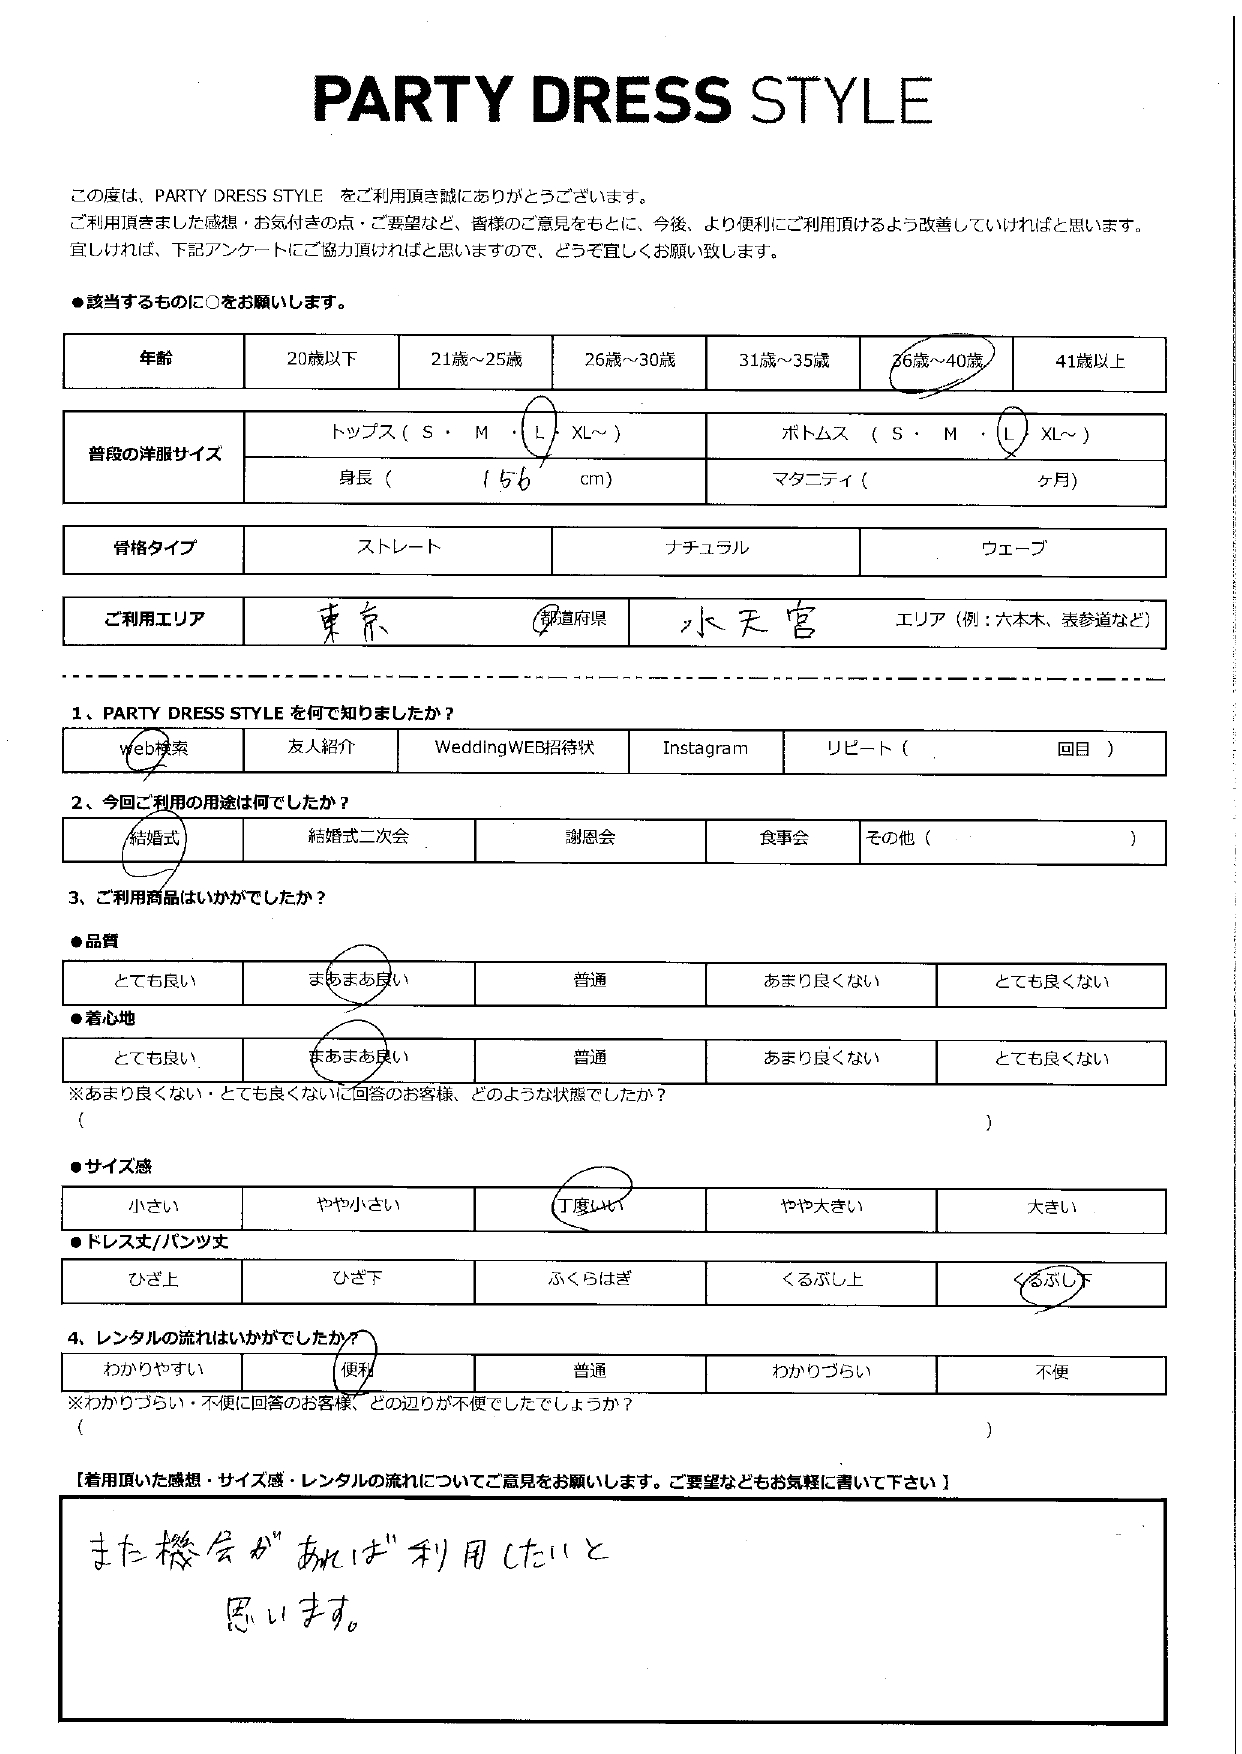 PARTY DRESS STYLE
この度は、PARTY DRESS STYLE をご利用頂き誠にありがとうございます。
ご利用頂きました感想・お気付きの点・ご要望など、皆様のご意見をもとに、今後、より便利にご利用頂けるよう改善していければと思います。
宜しければ、下記アンケートにご協力頂ければと思いますので、どうぞ宜しくお願い致します。
●該当するものに○をお願いします。
年齢 20歳以下 21歳～25歳 26歳～30歳 31歳～35歳 36歳～40歳 41歳以上
普段の洋服サイズ
トップス ( S ・ M ・ L ・ XL～ ) ボトムス ( S ・ M ・ L ・ XL～ )
身長 ( 156 cm) マタニティ ( ヶ月)
骨格タイプ ストレート ナチュラル ウェーブ
ご利用エリア 東京 都道府県 水天宮 エリア（例：六本木、表参道など）
1、PARTY DRESS STYLE を何で知りましたか？
web検索 友人紹介 WeddingWEB招待状 Instagram リピート ( 回目 )
2、今回ご利用の用途は何でしたか？
結婚式 結婚式二次会 謝恩会 食事会 その他 ( )
3、ご利用商品はいかがでしたか？
●品質
とても良い まあまあ良い 普通 あまり良くない とても良くない
●着心地
とても良い まあまあ良い 普通 あまり良くない とても良くない
※あまり良くない・とても良くないに回答のお客様、どのような状態でしたか？
( )
●サイズ感
小さい やや小さい 丁度いい やや大きい 大きい
●ドレス丈/パンツ丈
ひざ上 ひざ下 ふくらはぎ くるぶし上 くるぶし下
4、レンタルの流れはいかがでしたか？
わかりやすい 便利 普通 わかりづらい 不便
※わかりづらい・不便に回答のお客様、どの辺りが不便でしたでしょうか？
( )
【着用頂いた感想・サイズ感・レンタルの流れについてご意見をお願いします。ご要望などもお気軽に書いて下さい 】
また機会があれば利用したいと
思います。